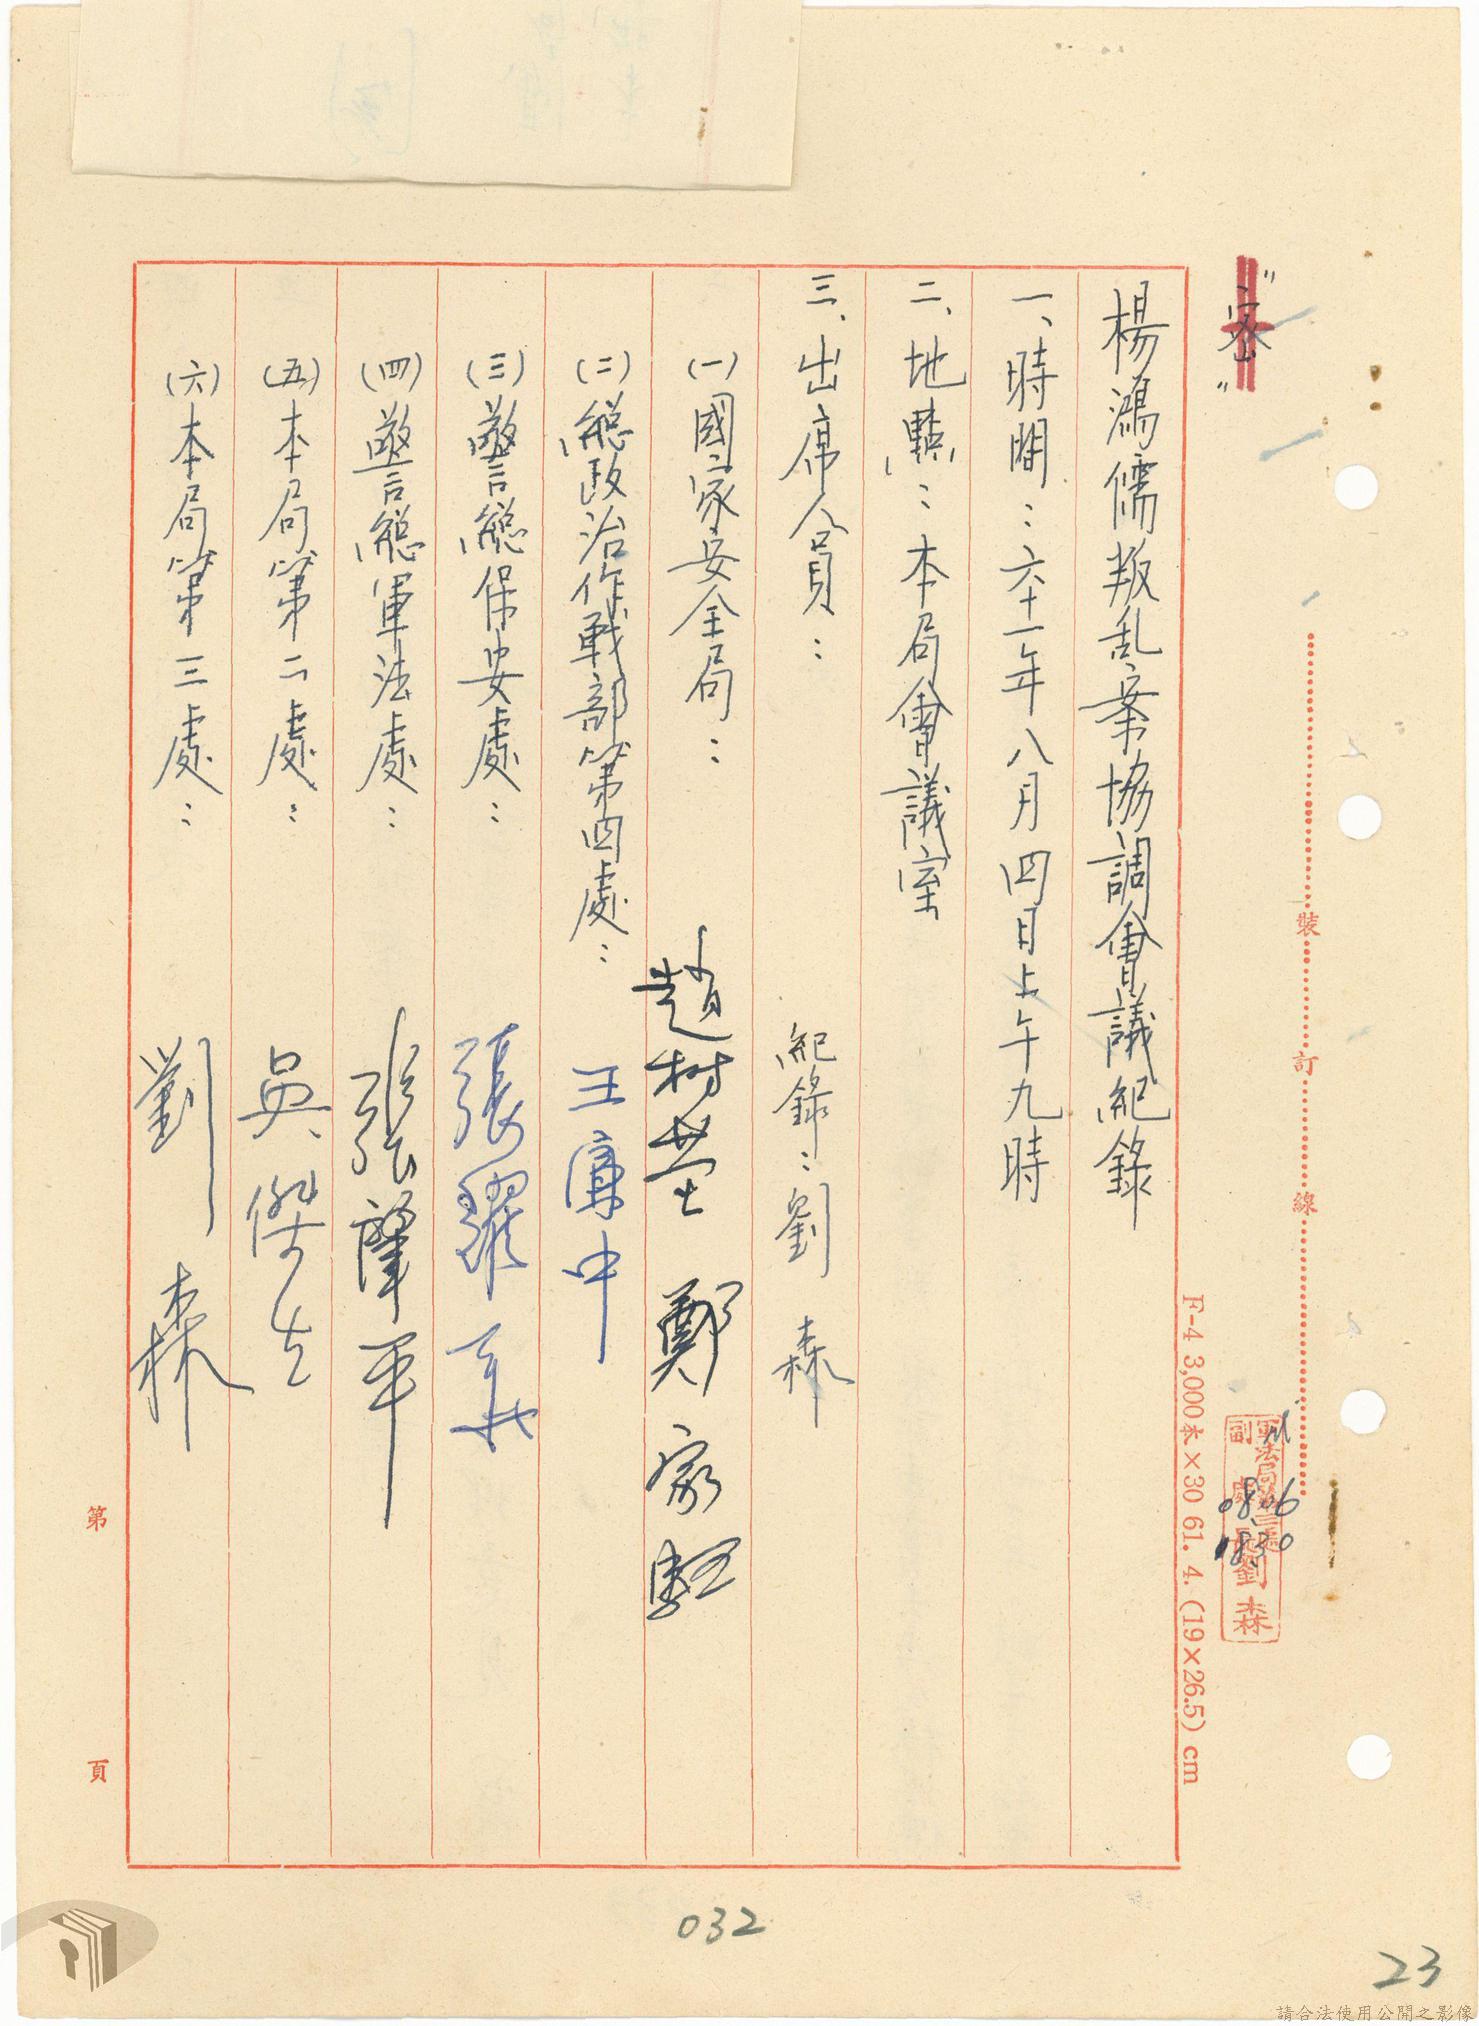 "密"
楊鴻儒叛乱案協調會議紀錄
一、時間：六十一年八月四日上午九時
二、地點：本局會議室
三、出席人員： 紀錄：劉森
(一)國家安全局： 趙樹 鄭家
(二)總政治作戰部第四處： 王廉中
(三)警總保安處： 張耀
(四)警總軍法處： 張肇平
(五)本局第二處： 吳傑
(六)本局第三處： 劉森
裝
訂
線
F-4 3,000本×30 61. 4. (19×26.5) cm
軍法局第三處
副處長劉森
08.06
1830
第
頁
032
23
請合法使用公開之影像